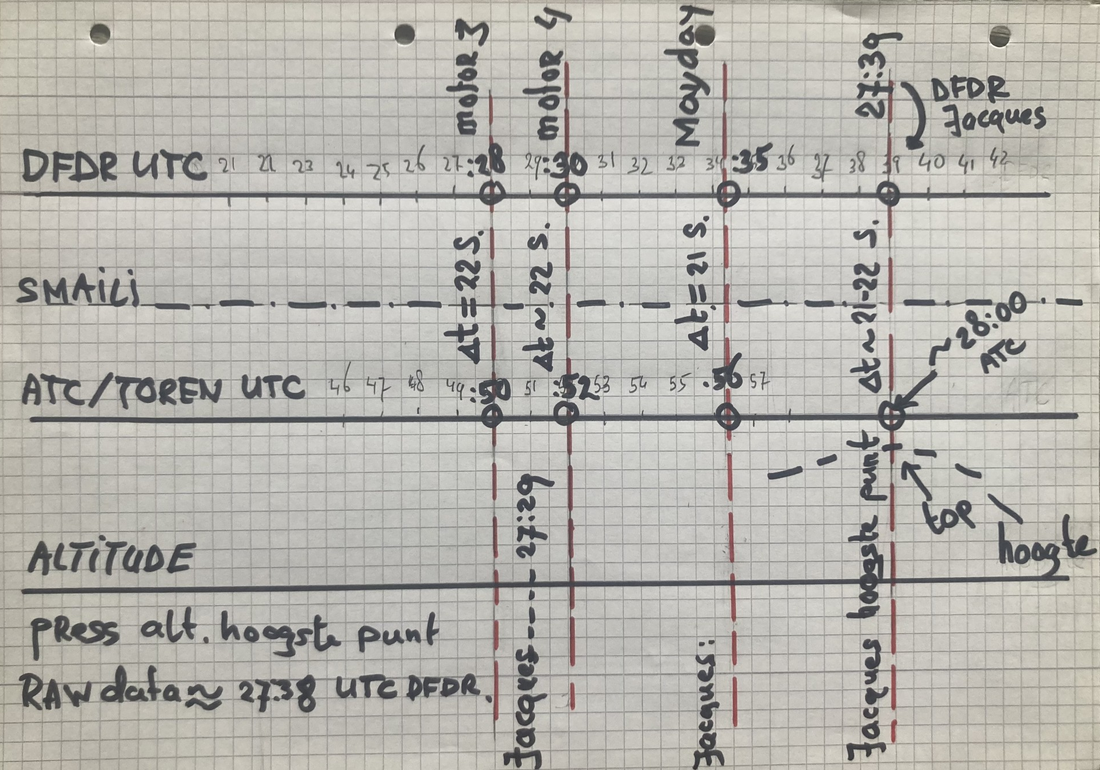 motor 3
motor 4
Mayday
27:39
DFDR
Jacques
DFDR UTC 21 22 23 24 25 26 27 :28 29 :30 31 32 33 34 :35 36 37 38 39 40 41 42
Δt = 22 S.
Δt ~ 22 S.
Δt = 21 S.
Δt ~ 21-22 S.
SMAiLi
~ 28:00
ATC
ATC/TOREN UTC 46 47 48 49 :50 51 :52 53 54 55 :56 57
top
hoogte
ALTiTUDE
Jacques---- 27:29
Jacques:
Jacques hoogste punt
PRess alt. hoogste punt
RAW data ≈ 27:38 UTC DFDR.